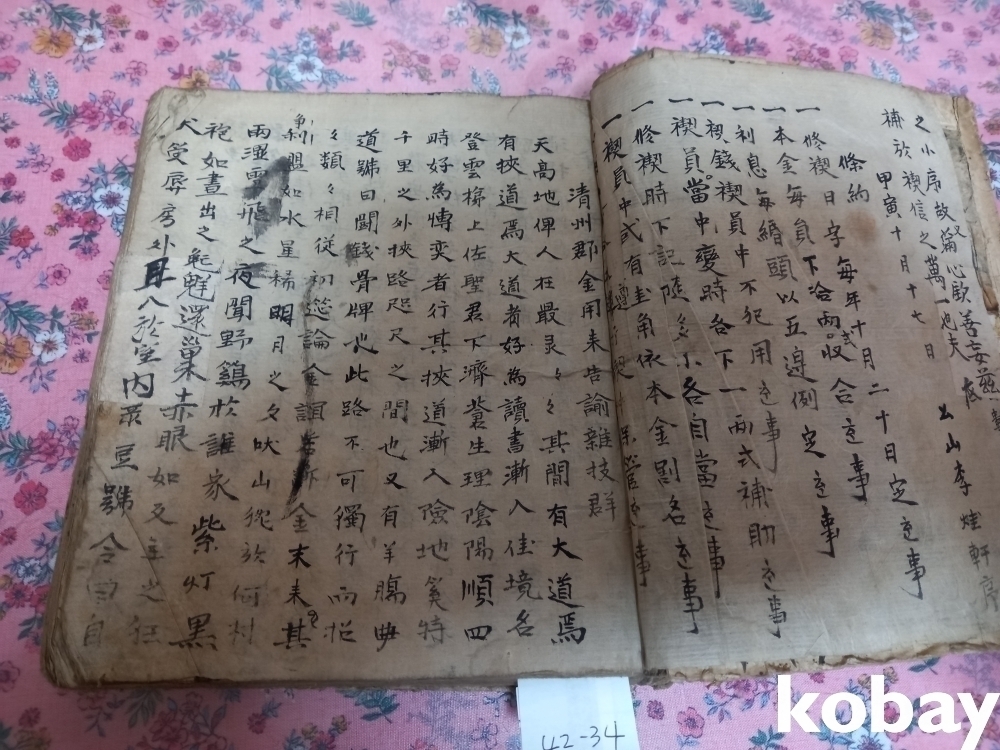 之小序故又薦心歐善妄
補於禊信之萬一也夫
甲寅十月十七日 山李煌軒序
條約
一 修禊日字每年十月二十日定主事
一 本金每員下合兩式收合主事
一 利息每緡頭以五邊例定主事
一 禊錢禊員中不犯用主事
一 禊員當中變時各下一兩式補助主事
一 修禊時下記隨多小各自當主事
一 禊員中或有圭角依本金割名主事
淸州郡金用来告諭雜技群
天高地俾人在最灵々其間有大道焉
有挾道焉大道者好為讀書漸入佳境名
登雲梯上佐聖君下濟蒼生理陰陽順四
時好為愽奕者行其挾道漸入險地奚特
千里之外挾路咫尺之間也又有羊膓曲
道號曰鬪錢骨牌也此路不可獨行而從
々類々相從初
盤如水星稀明月之夕吠山猊於何村
雨濕雲飛之夜聞野鷄於誰家紫灯黑
袍如晝出之魍魎還巢赤眼如及主之狂
犬受辱房外且入於室內
42-34
kobay